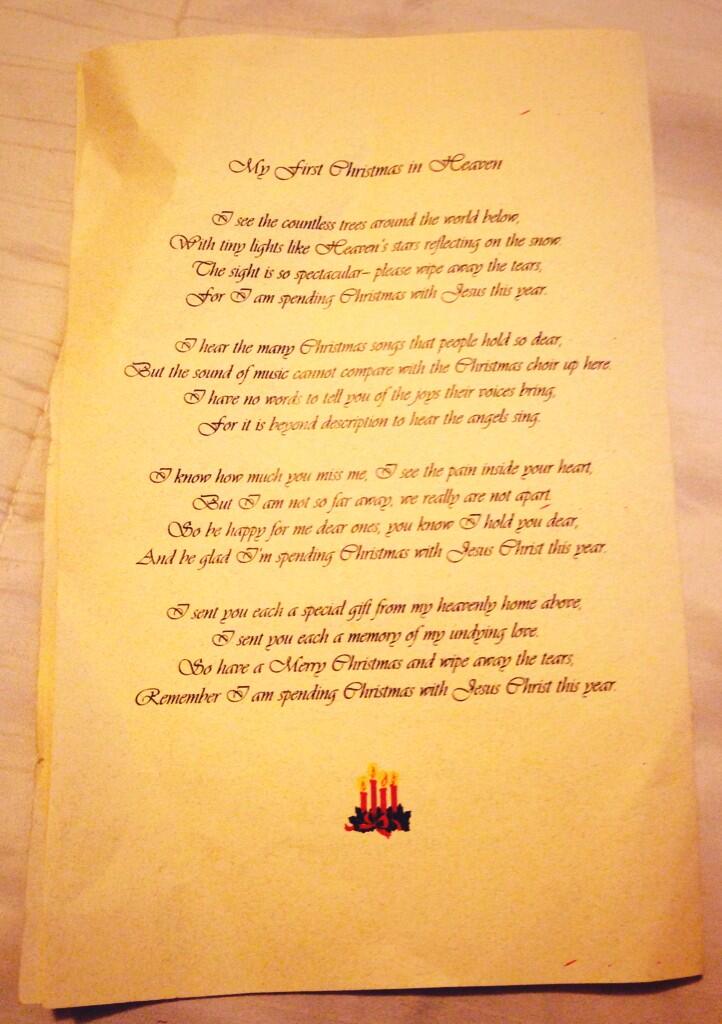 My First Christmas in Heaven
I see the countless trees around the world below,
With tiny lights like Heaven's stars reflecting on the snow.
The sight is so spectacular– please wipe away the tears,
For I am spending Christmas with Jesus this year.
I hear the many Christmas songs that people hold so dear,
But the sound of music cannot compare with the Christmas choir up here.
I have no words to tell you of the joys their voices bring,
For it is beyond description to hear the angels sing.
I know how much you miss me, I see the pain inside your heart,
But I am not so far away, we really are not apart.
So be happy for me dear ones, you know I hold you dear,
And be glad I'm spending Christmas with Jesus Christ this year.
I sent you each a special gift from my heavenly home above,
I sent you each a memory of my undying love.
So have a Merry Christmas and wipe away the tears,
Remember I am spending Christmas with Jesus Christ this year.